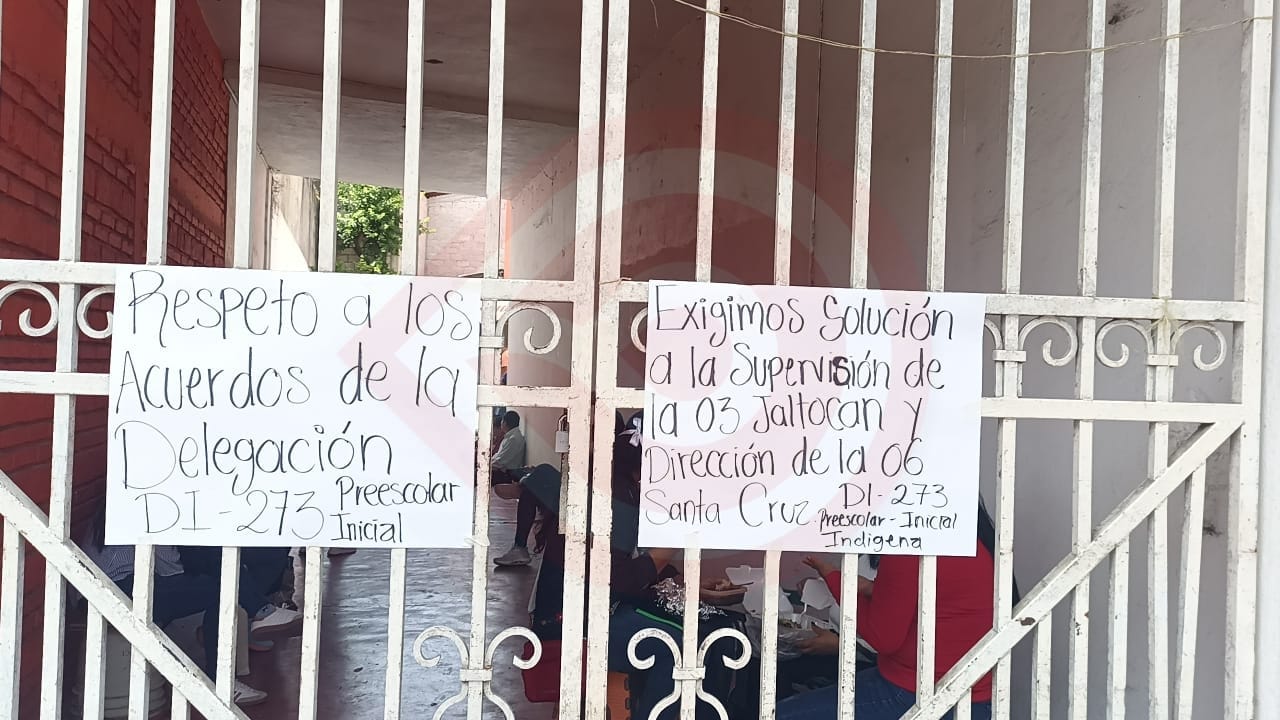 Respeto a los
Acuerdos de la
Delegación
DI-273 Preescolar
Inicial
Exigimos Solución
a la Supervisión de
la 03 Jaltocan y
Dirección de la 06
Santa Cruz. DI-273
Preescolar-Inicial
Indigena